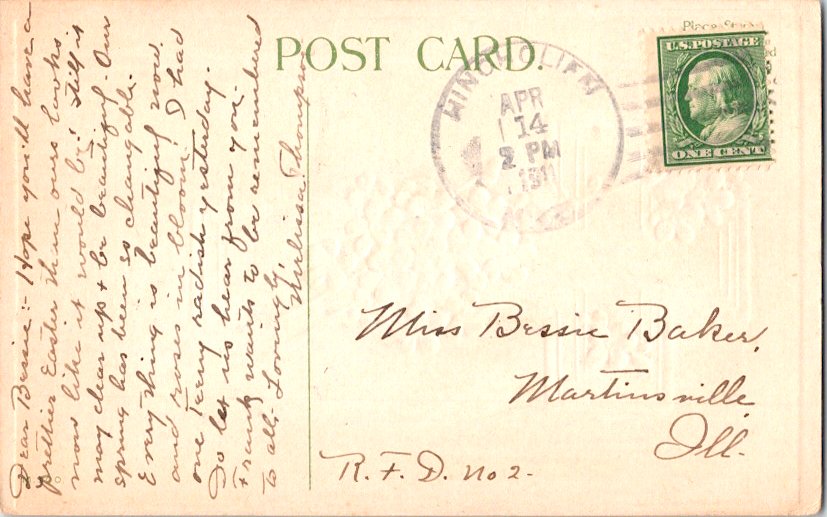 POST CARD.
Place Stamp
U.S. POSTAGE
ONE CENT
APR
14
2 PM
1911
Dear Bessie:- Hope you'll have a
prettier Easter than ours looks
now like it would be. Still it
may clear up & be beautiful. Our
spring has been so changable.
Everything is beautiful now
and roses in bloom. I had
one teeny radish yesterday.
Do let us hear from you.
Frank wants to be remembered
to all. Lovingly,
Melissa Thompson
Miss Bessie Baker,
Martinsville
Ill.
R. F. D. No 2-